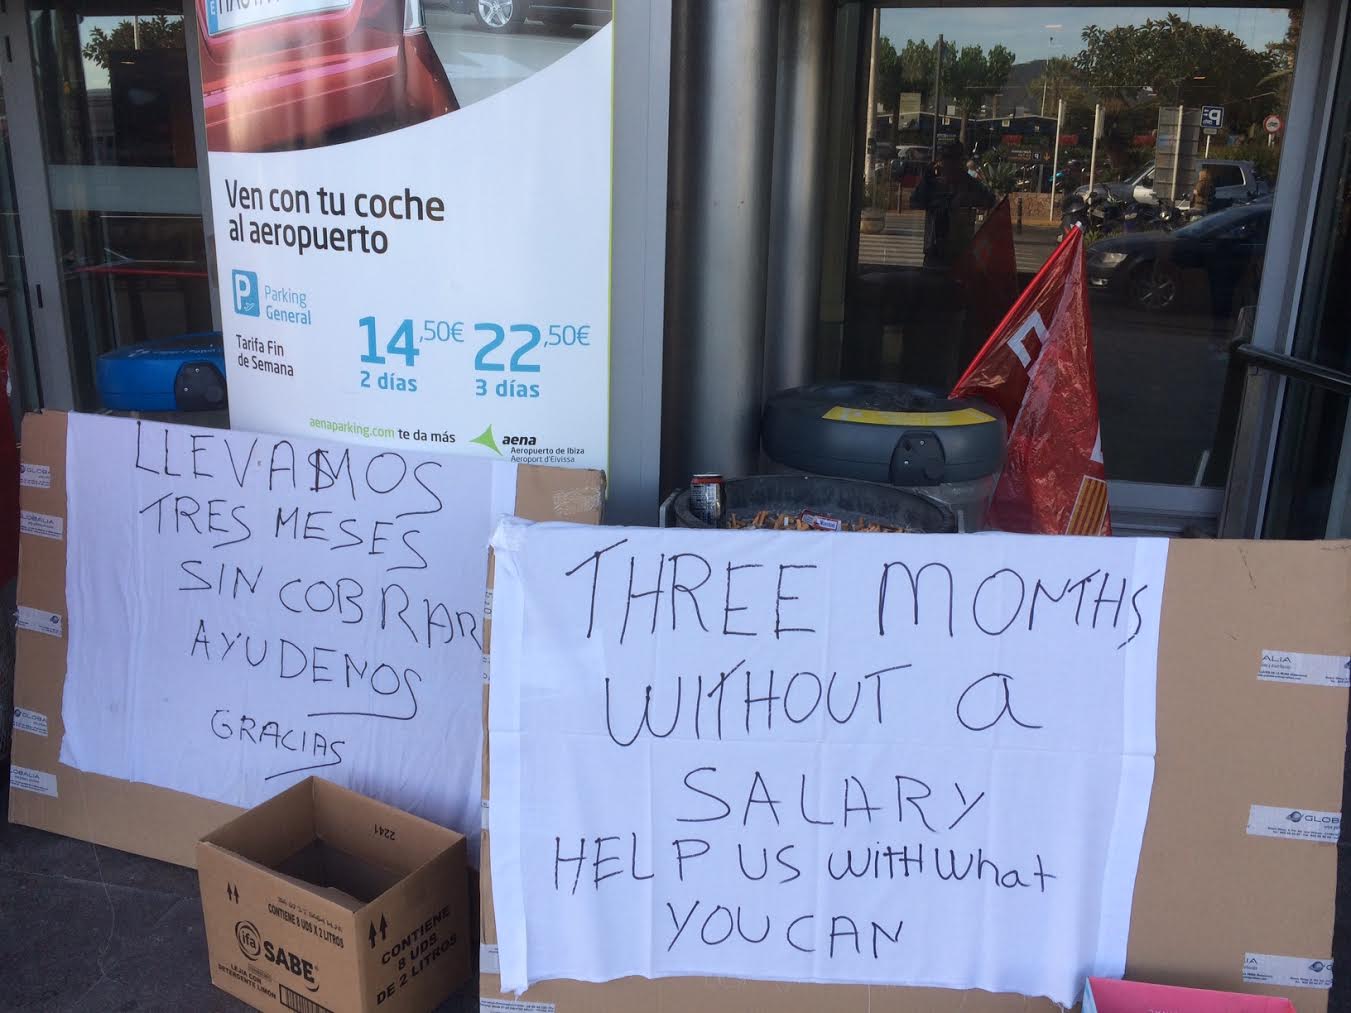 Ven con tu coche
al aeropuerto
P Parking
General
Tarifa Fin
de Semana
14,50€ 22,50€
2 días 3 días
aenaparking.com te da más
aena
Aeropuerto de Ibiza
Aeroport d'Eivissa
LLEVAMOS
TRES MESES
SIN COBRAR
AYUDENOS
GRACIAS
THREE MONTHS
WITHOUT A
SALARY
HELP US WITH What
YOU CAN
2241
CONTIENE 8 UDS X 2 LITROS
ifa SABE
LEJIA CON
DETERGENTE LIMÓN
CONTIENE
8 UDS
DE 2 LITROS
GLOBALIA